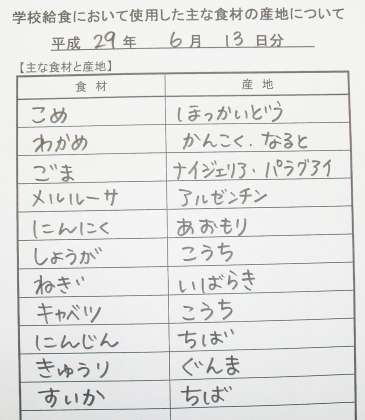 学校給食において使用した主な食材の産地について
平成 29 年 6 月 13 日分
【主な食材と産地】
食 材 産 地
こめ ほっかいどう
わかめ かんこく.なると
ごま ナイジェリア・パラグアイ
メルルーサ アルゼンチン
にんにく あおもり
しょうが こうち
ねぎ いばらき
キャベツ こうち
にんじん ちば
きゅうり ぐんま
すいか ちば